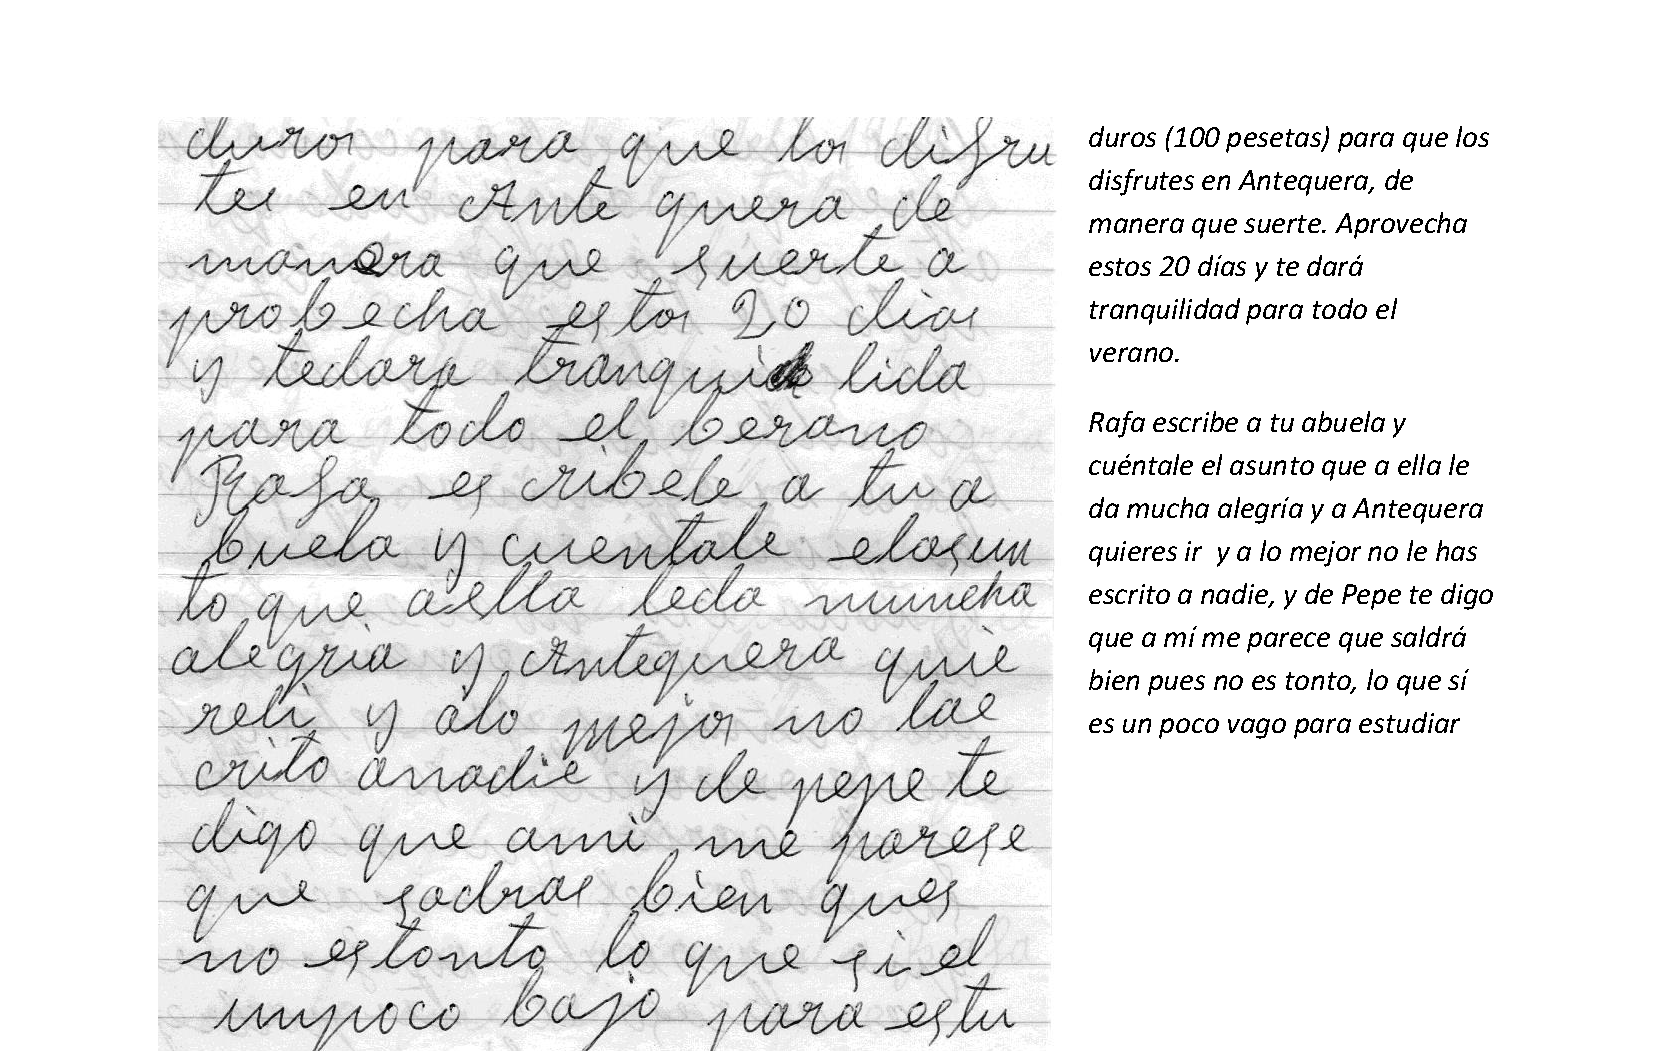 duros para que los disfru
tes en Ante quera de
manera que suerte a
probecha estos 20 dias
y tedara tranqui lida
para todo el berano
Rafa es cribele a tu a
buela y cuentale elasun
to que aella leda muncha
alegria y Antequera quie
reli y alo mejor no lae
crito anadie y de pepe te
digo que ami me parese
que sadras bien ques
no estonto lo que si el
umpoco bajo para estu
duros (100 pesetas) para que los
disfrutes en Antequera, de
manera que suerte. Aprovecha
estos 20 días y te dará
tranquilidad para todo el
verano.
Rafa escribe a tu abuela y
cuéntale el asunto que a ella le
da mucha alegría y a Antequera
quieres ir y a lo mejor no le has
escrito a nadie, y de Pepe te digo
que a mí me parece que saldrá
bien pues no es tonto, lo que sí
es un poco vago para estudiar